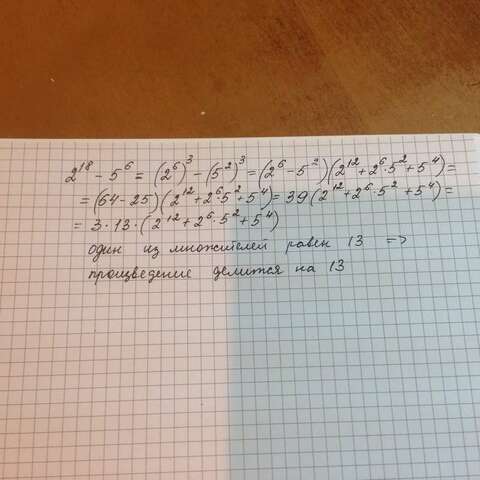 2¹⁸ - 5⁶ = (2⁶)³ - (5²)³ = (2⁶ - 5²)(2¹² + 2⁶·5² + 5⁴) =
= (64 - 25)(2¹² + 2⁶·5² + 5⁴) = 39(2¹² + 2⁶·5² + 5⁴) =
= 3·13·(2¹² + 2⁶·5² + 5⁴)
один из множителей равен 13 =>
произведение делится на 13